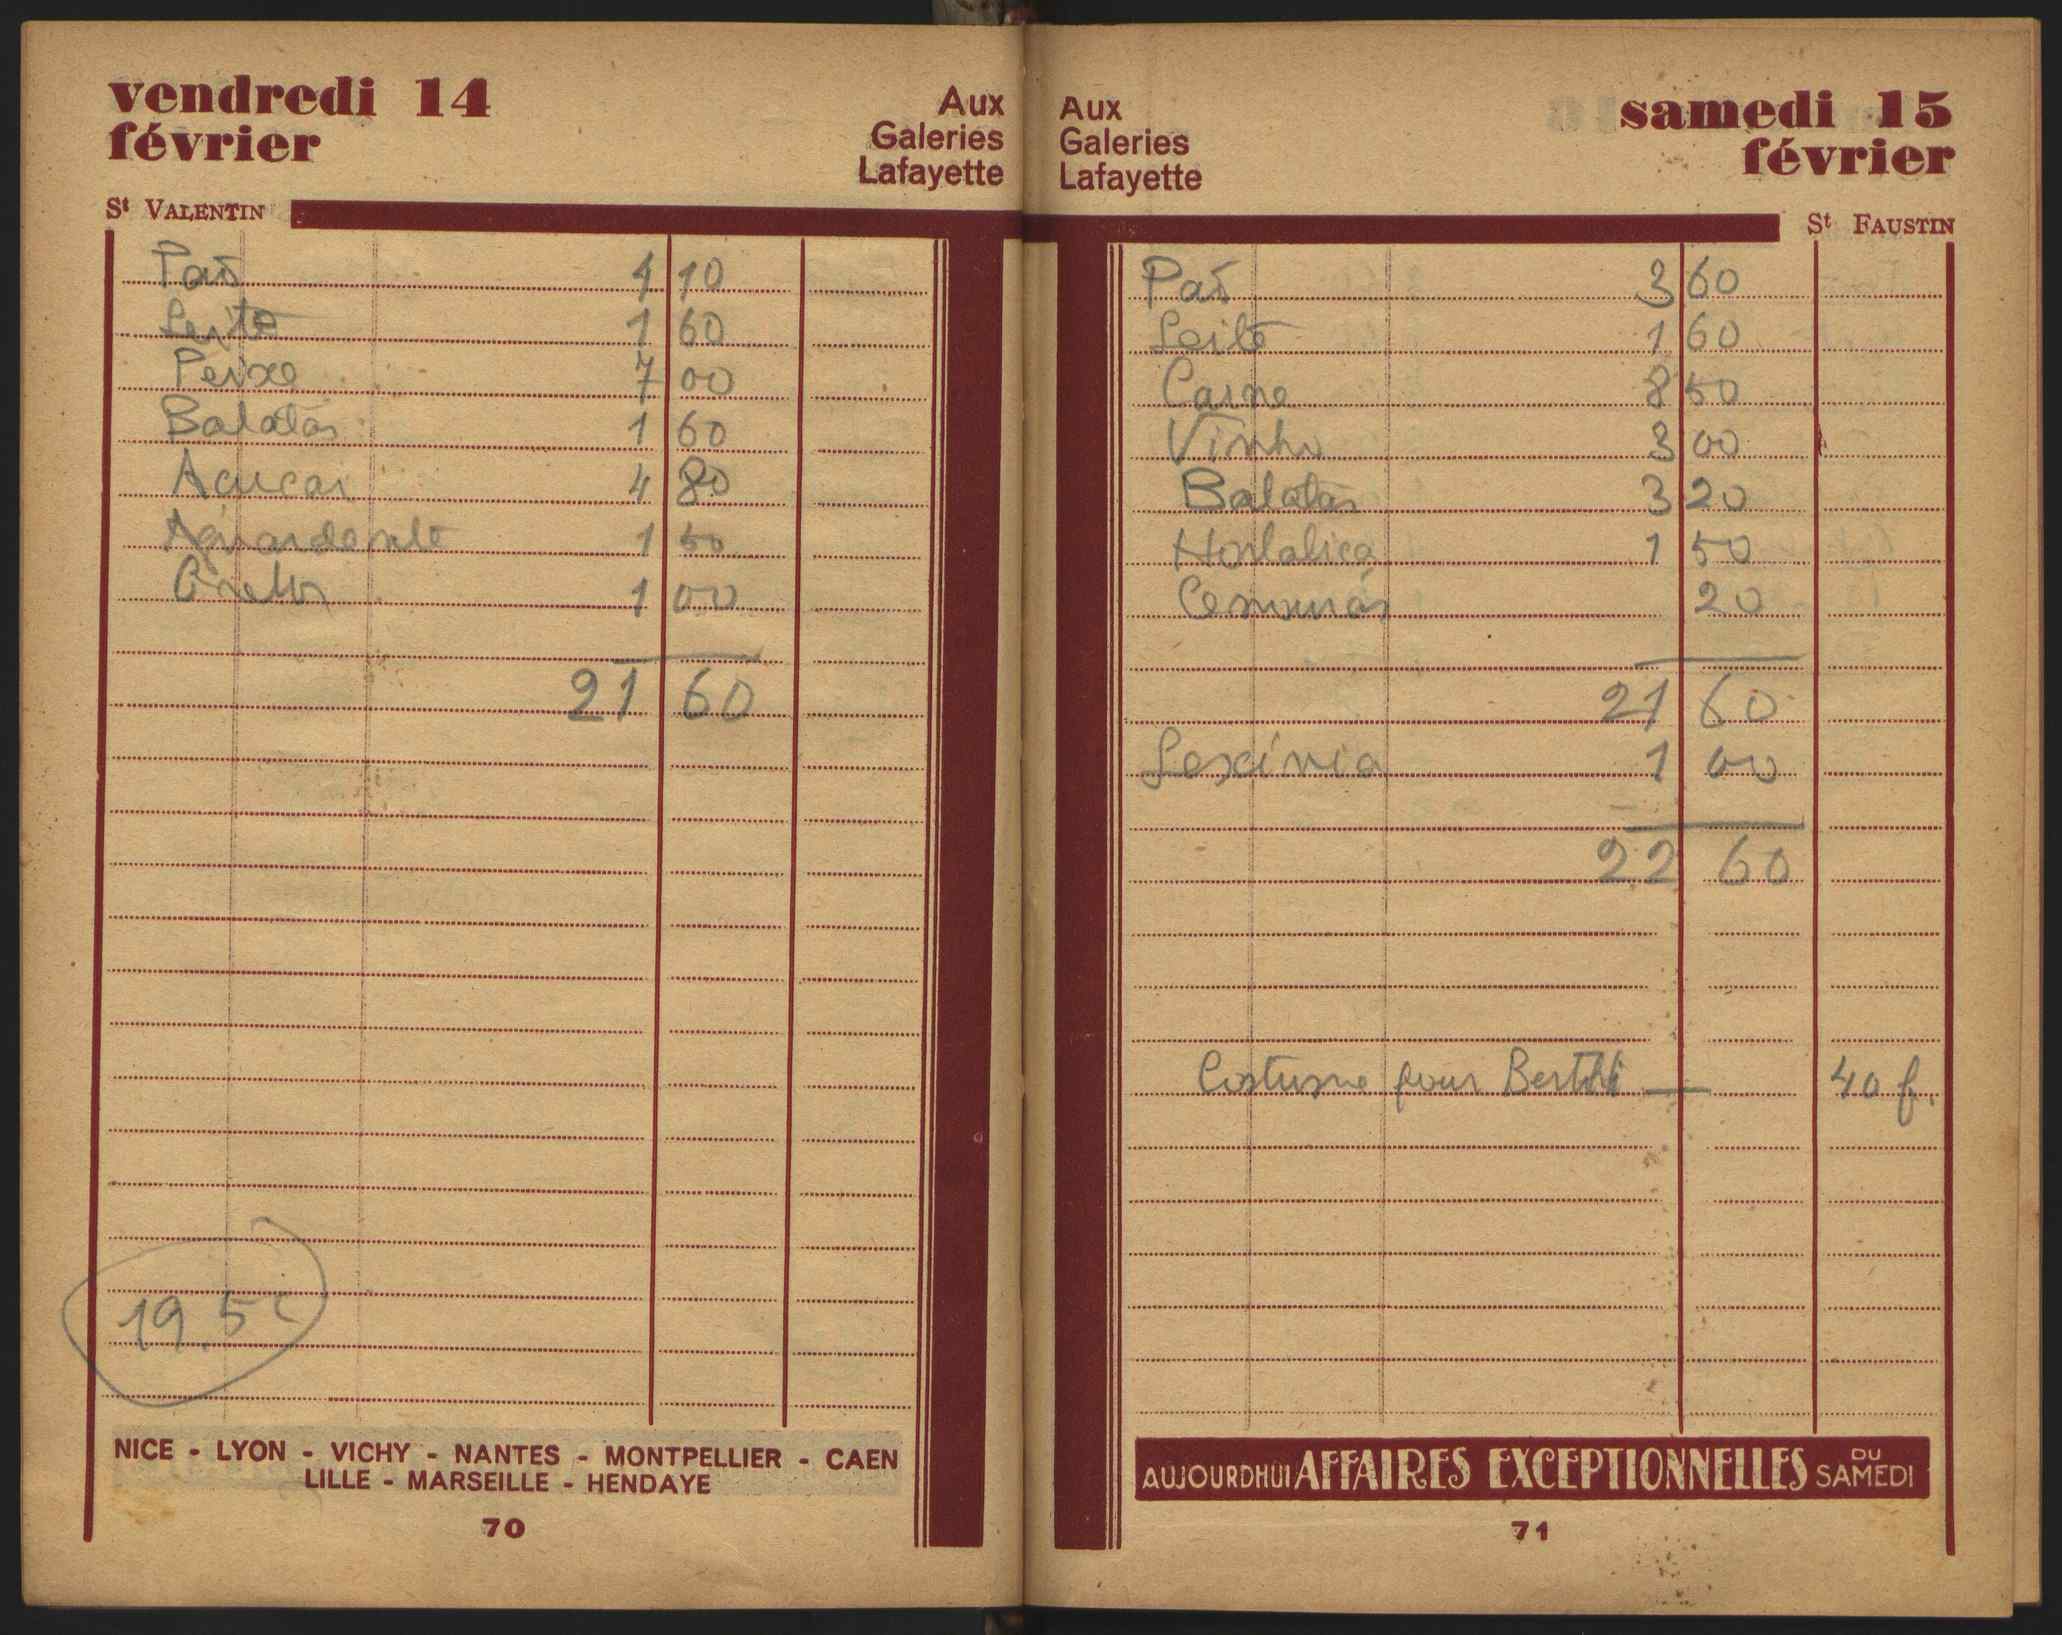 vendredi 14
février
Aux
Galeries
Lafayette
St VALENTIN
Paõ 4 10
Leite 1 60
Peixe 7 00
Batatas 1 60
Açucar 4 80
Aguardente 1 50
1 00
21 60
19.5
NICE - LYON - VICHY - NANTES - MONTPELLIER - CAEN
LILLE - MARSEILLE - HENDAYE
70
Aux
Galeries
Lafayette
samedi 15
février
St FAUSTIN
Paõ 3 60
Leite 1 60
Carne 8 50
Vinho 3 00
Batatas 3 20
Hortaliça 1 50
Cenouras 20
21 60
Lexívia 1 00
22 60
Costume pour 40 f.
AUJOURDHUI AFFAIRES EXCEPTIONNELLES DU SAMEDI
71